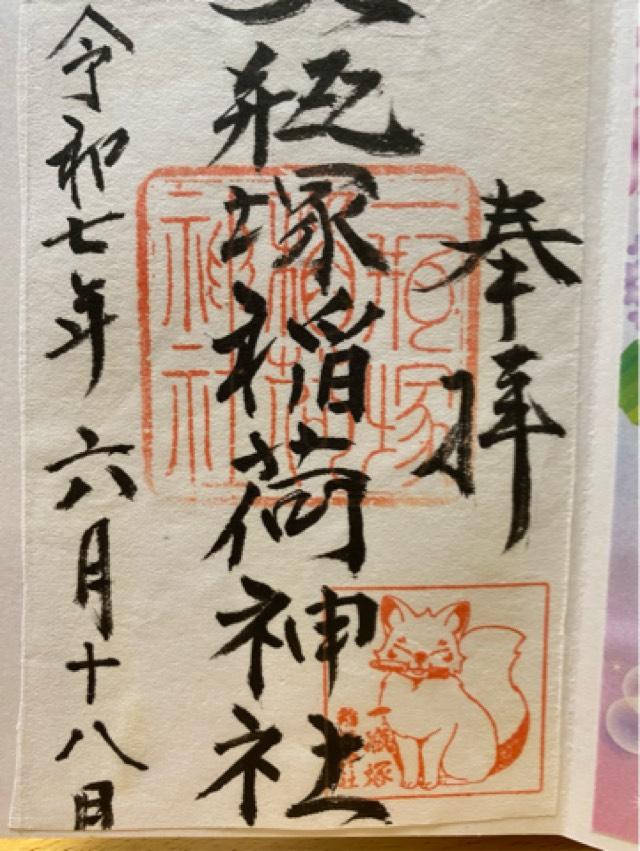 奉拝
瓶塚稲荷神社
令和七年六月十八日
一瓶塚
稲荷
神社
一瓶塚